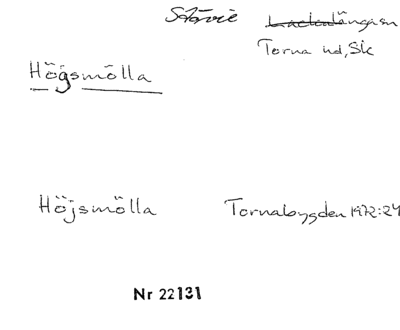 Stävie
Torna hd, Sk
Högsmölla
Höjsmölla Tornabygden 1972:24
Nr 22131